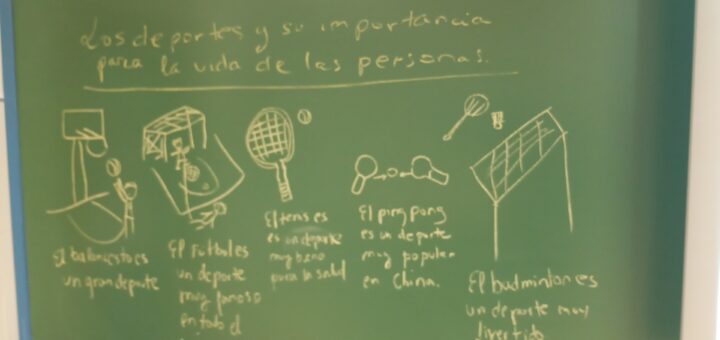 Los deportes y su importancia
para la vida de las personas.
El baloncesto es
un gran deporte
El futbol es
un deporte
muy famoso
en todo el
El tenis es
es un deporte
muy bueno
para la salud
El ping pong
es un deporte
muy popular
en China.
El badminton es
un deporte muy
divertido